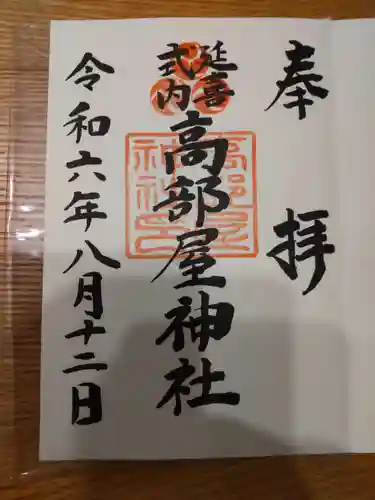 奉拝
延喜
式内
高部屋神社
高部屋
神社印
令和六年八月十二日